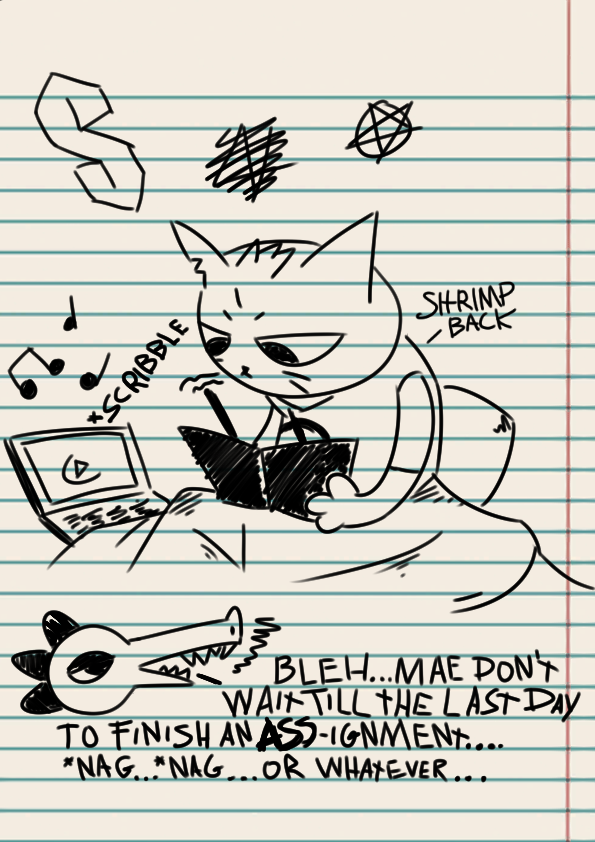 S
SHRIMP
BACK
*SCRIBBLE
BLEH...MAE DON'T
WAIT TILL THE LAST DAY
TO FINISH AN ASS-IGNMENT....
*NAG...*NAG...OR WHATEVER...